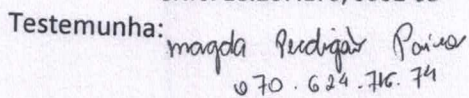 Testemunha: magda Perdigão Paiva
070.624.716.74